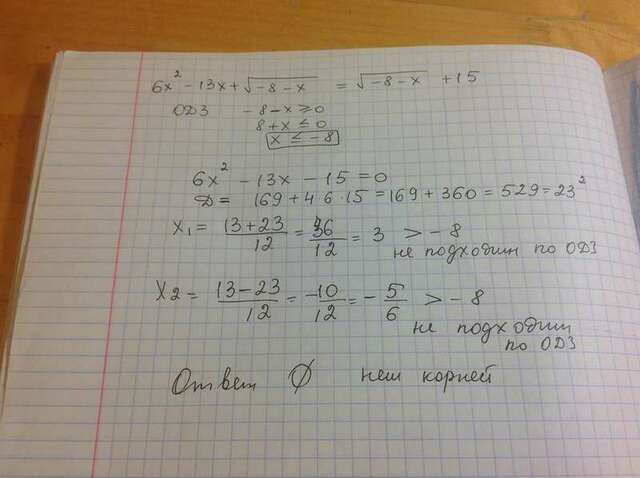 6x² - 13x + √(-8-x) = √(-8-x) + 15
ОДЗ -8-x ≥ 0
8+x ≤ 0
x ≤ -8
6x² - 13x - 15 = 0
Д = 169 + 4 6·15 = 169 + 360 = 529 = 23²
x₁ = (13+23)/12 = 36/12 = 3 > -8
не подходит по ОДЗ
x₂ = (13-23)/12 = -10/12 = -5/6 > -8
не подходит
по ОДЗ
Ответ ∅ нет корней